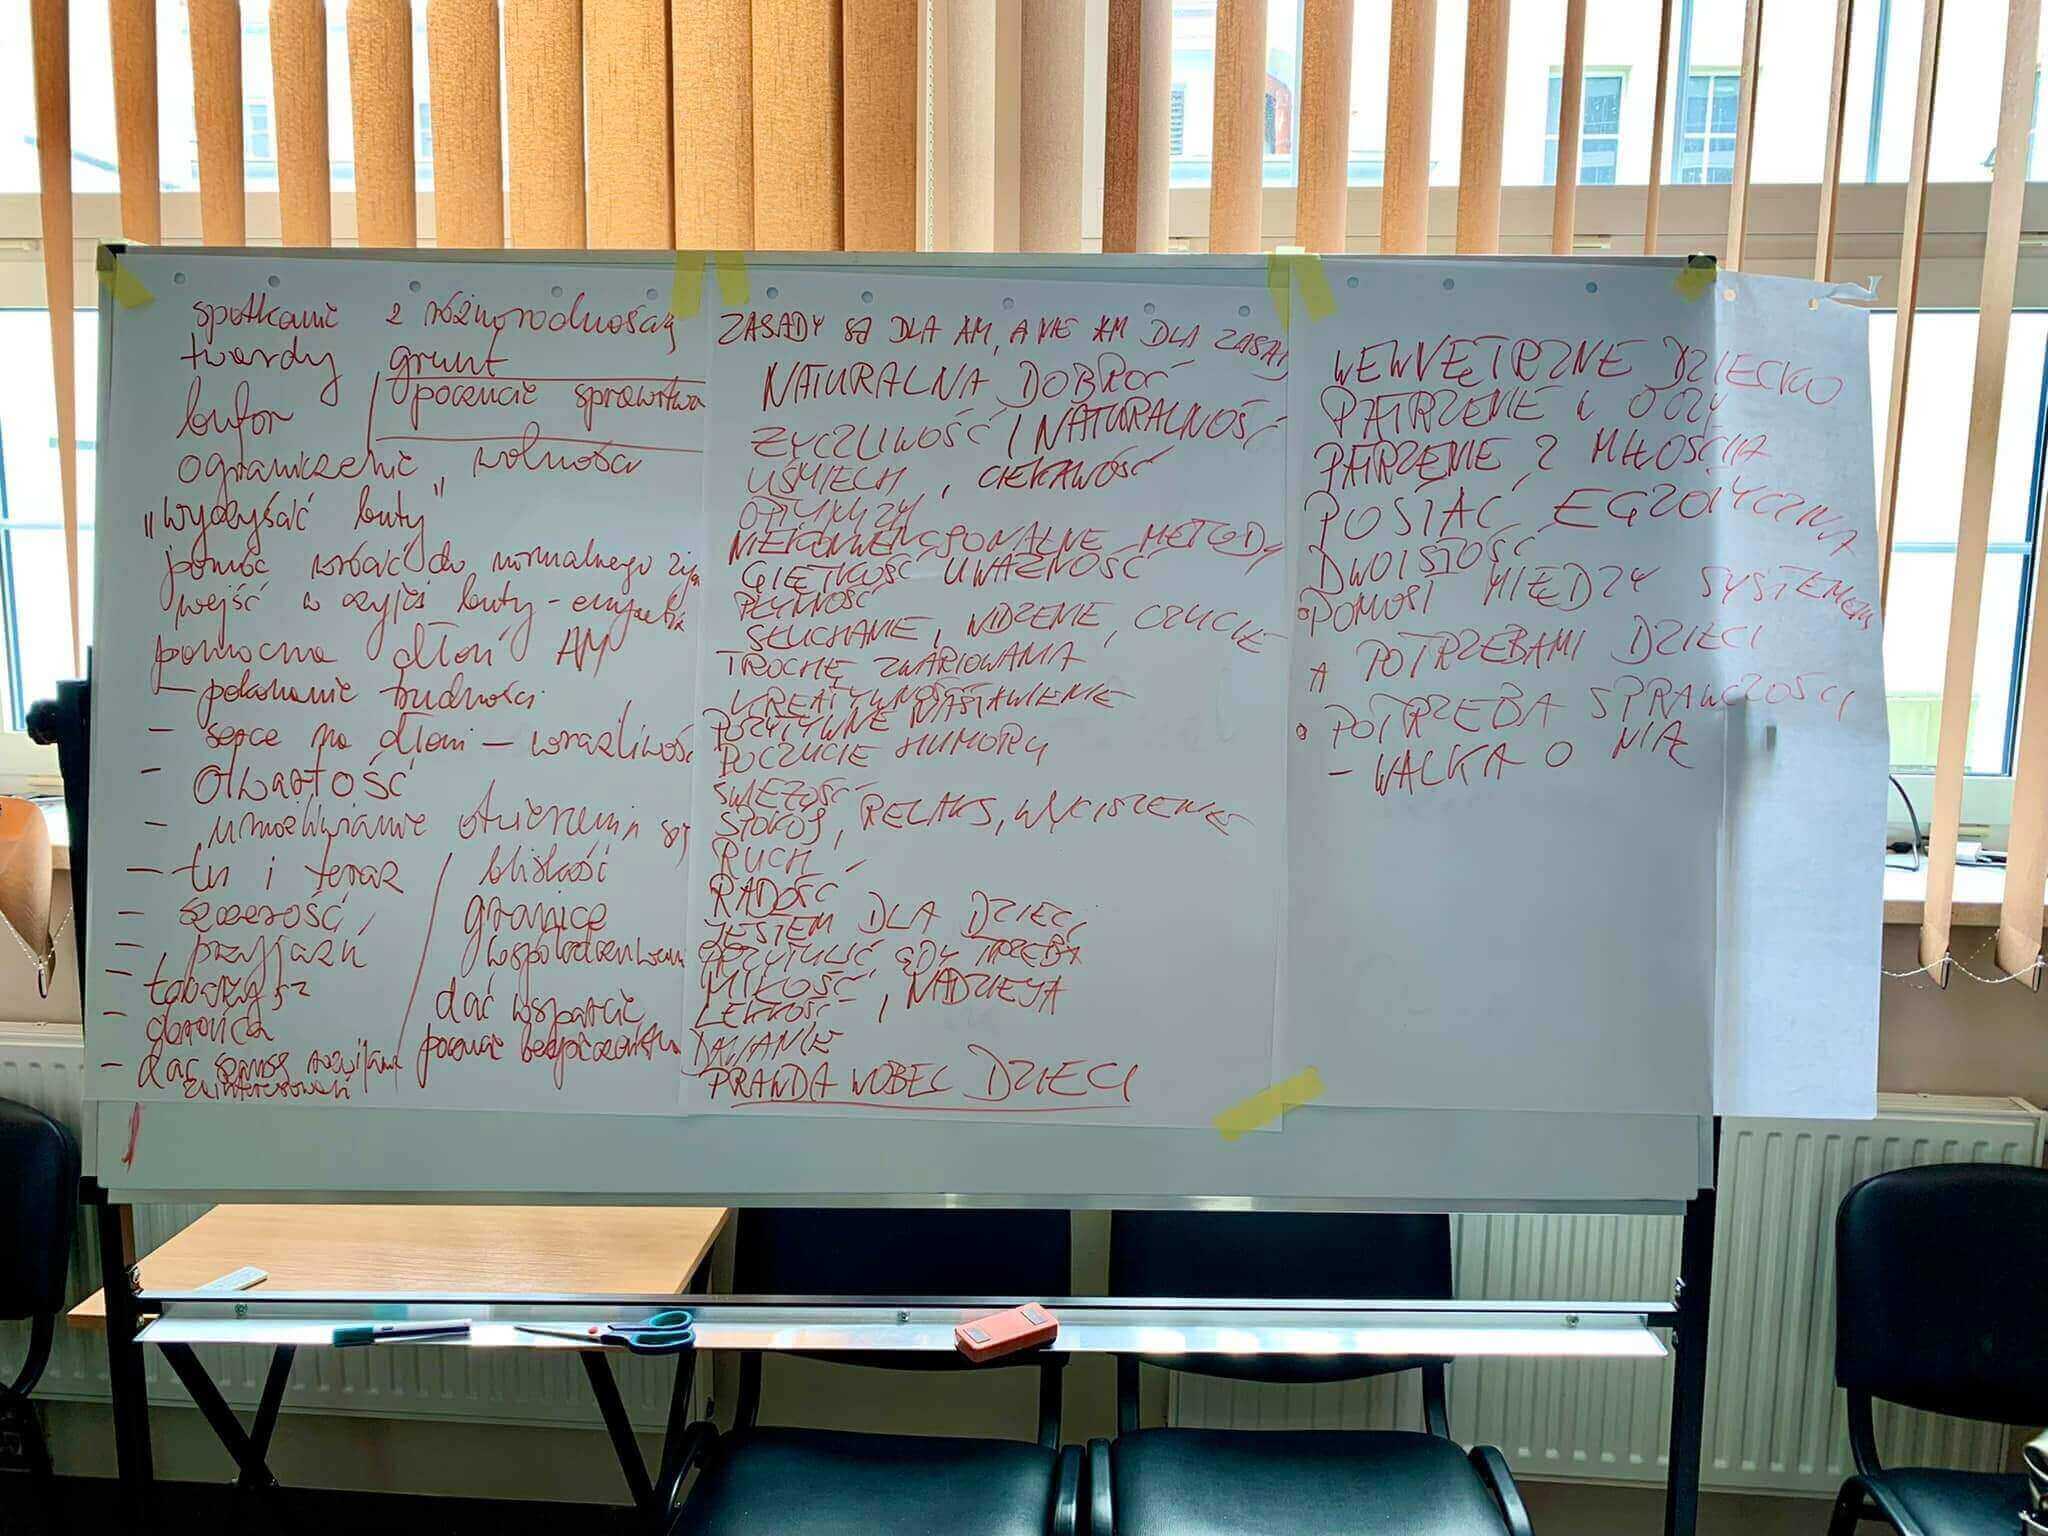 spotkanie z różnorodnością
twardy grunt
bufor / poczucie sprawstwa
ograniczenie wolności
"wyczyścić buty"
pomóc wrócić do normalnego życia
wejść w czyjeś buty - empatia
pomocna dłoń AM
- pokonanie trudności
- serce na dłoni - wrażliwość
- otwartość
- umożliwianie otwierania się
- tu i teraz
- szczerość,
- , przyjaźń
-
- obrońca
- dać szansę rozwijania
zainteresowań
bliskość
granice
dać wsparcie
poczucie bezpieczeństwa
ZASADY SĄ DLA AM, A NIE AM DLA ZASAD
NATURALNA DOBROĆ
ŻYCZLIWOŚĆ I NATURALNOŚĆ
UŚMIECH, CIEKAWOŚĆ
OPTYMIZM
NIEKONWENCJONALNE METODY
GIĘTKOŚĆ UWAŻNOŚĆ
PŁYNNOŚĆ
SŁUCHANIE, WIDZENIE, CZUCIE
TROCHĘ ZWARIOWANIA
KREATYWNOŚĆ
POZYTYWNE NASTAWIENIE
POCZUCIE HUMORU
ŚWIEŻOŚĆ
SPOKÓJ, RELAKS, WYCISZENIE
RUCH
RADOŚĆ
JESTEM DLA DZIECI
PRZYTULIĆ GDY TRZEBA
MIŁOŚĆ, NADZIEJA
LEKKOŚĆ
DZIAŁANIE
PRAWDA WOBEC DZIECI
WEWNĘTRZNE DZIECKO
PATRZENIE W OCZY
PATRZENIE Z MIŁOŚCIĄ
POSTAĆ EGZOTYCZNA
DWOISTOŚĆ
• POMOST MIĘDZY SYSTEMEM
A POTRZEBAMI DZIECI
• POTRZEBA SPRAWCZOŚCI
- WALKA O NIĄ